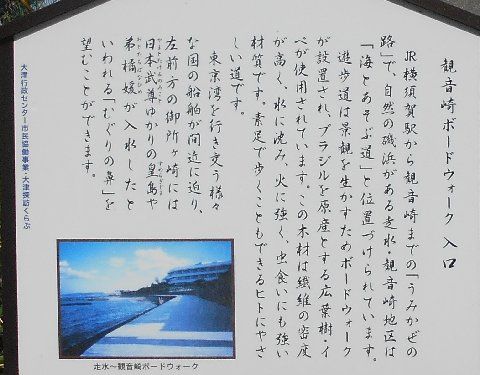 観音崎ボードウォーク 入口
JR横須賀駅から観音崎までの「うみかぜの
路」で、自然の磯浜がある走水・観音崎地区は
「海とあそぶ道」と位置づけられています。
遊歩道は景観を生かすためボードウォーク
が設置され、ブラジルを原産とする広葉樹・イ
ペが使用されています。この木材は繊維の密度
が高く、水に沈み、火に強く、虫食いにも強い
材質です。素足で歩くこともできるヒトにやさ
しい道です。
東京湾を行き交う様々
な国の船舶が間近に迫り、
左前方の御所ヶ崎には
日本武尊ゆかりの皇島や
弟橘媛が入水したと
いわれる「むぐりの鼻」を
望むことができます。
大津行政センター市民協働事業・大津探訪くらぶ
走水〜観音崎ボードウォーク